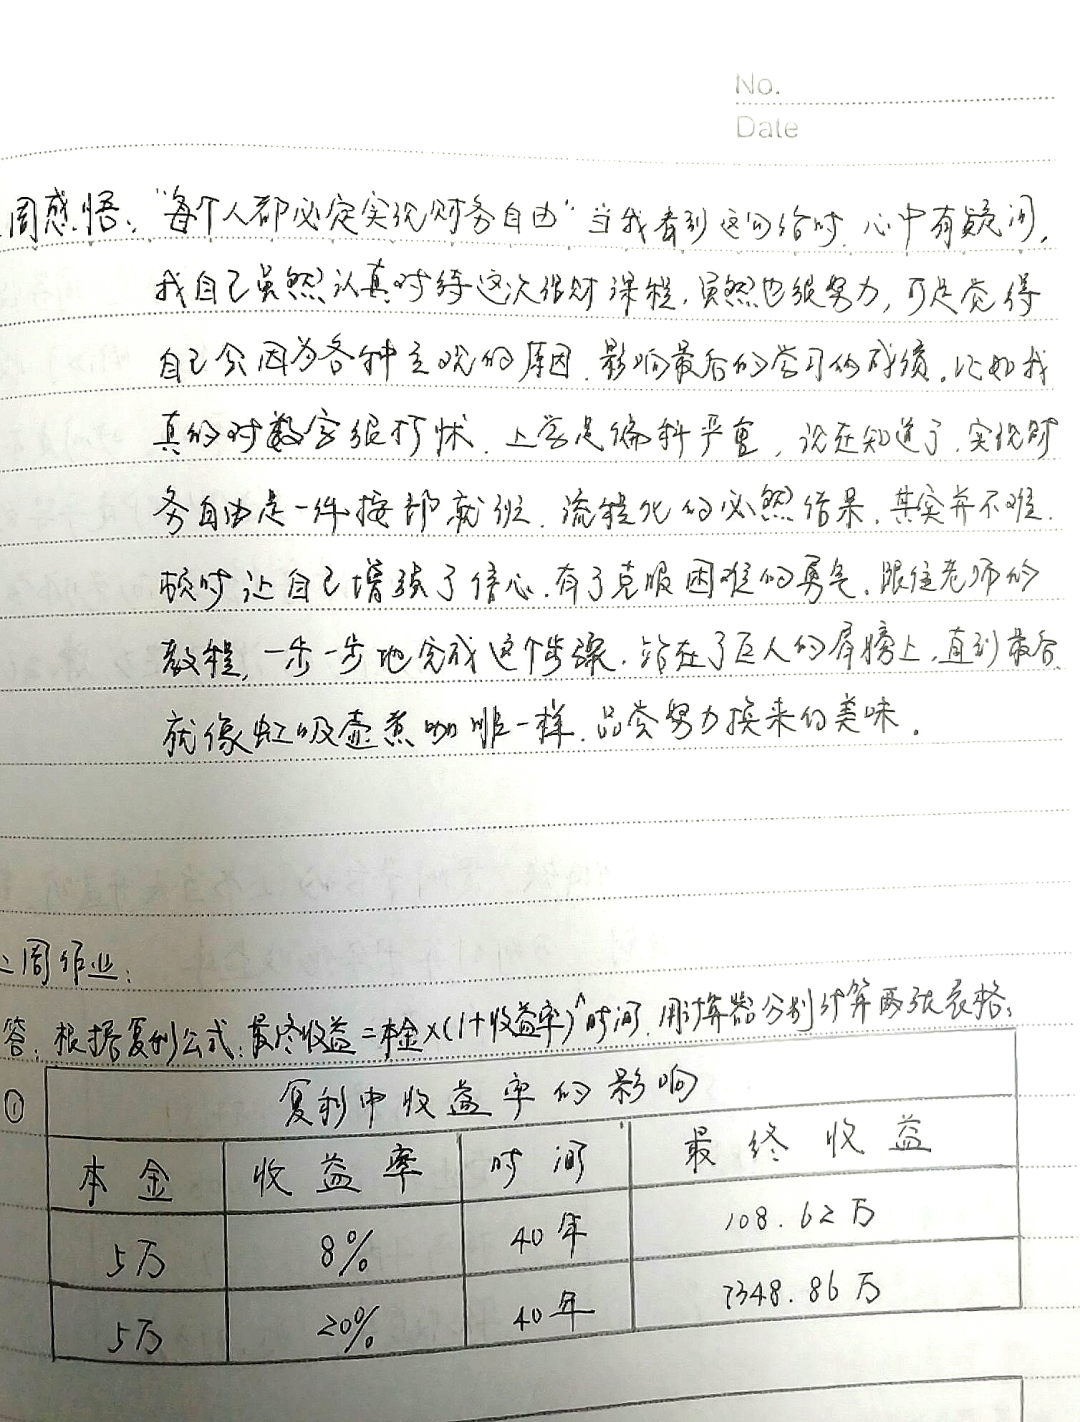 No.
Date
周感悟："每个人都必定实现财务自由"当我看到这句话时，心中有疑问，
我自己虽然认真对待这次理财课程，虽然也很努力，可是觉得
自己会因为各种主观的原因，影响最后的学习的成绩。比如我
真的对数字很打怵，上学是偏科严重，现在知道了，实现财
务自由是一件按部就班，流程化的必然结果，其实并不难，
顿时让自己增强了信心，有了克服困难的勇气，跟住老师的
教程，一步一步地完成这个步骤，站在了巨人的肩膀上，直到最后
就像虹吸壶煮咖啡一样，品尝努力换来的美味。
周作业：
答：根据复利公式：最终收益=本金×(1+收益率)^时间，用计算器分别计算两张表格：
① 复利中收益率的影响
本金 收益率 时间 最终收益
5万 8% 40年 108.62万
5万 20% 40年 7348.86万